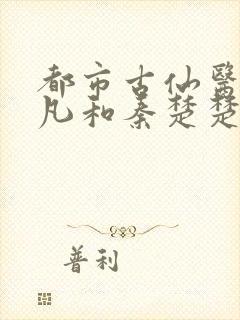 都市古仙醫
凡和秦楚楚
普利